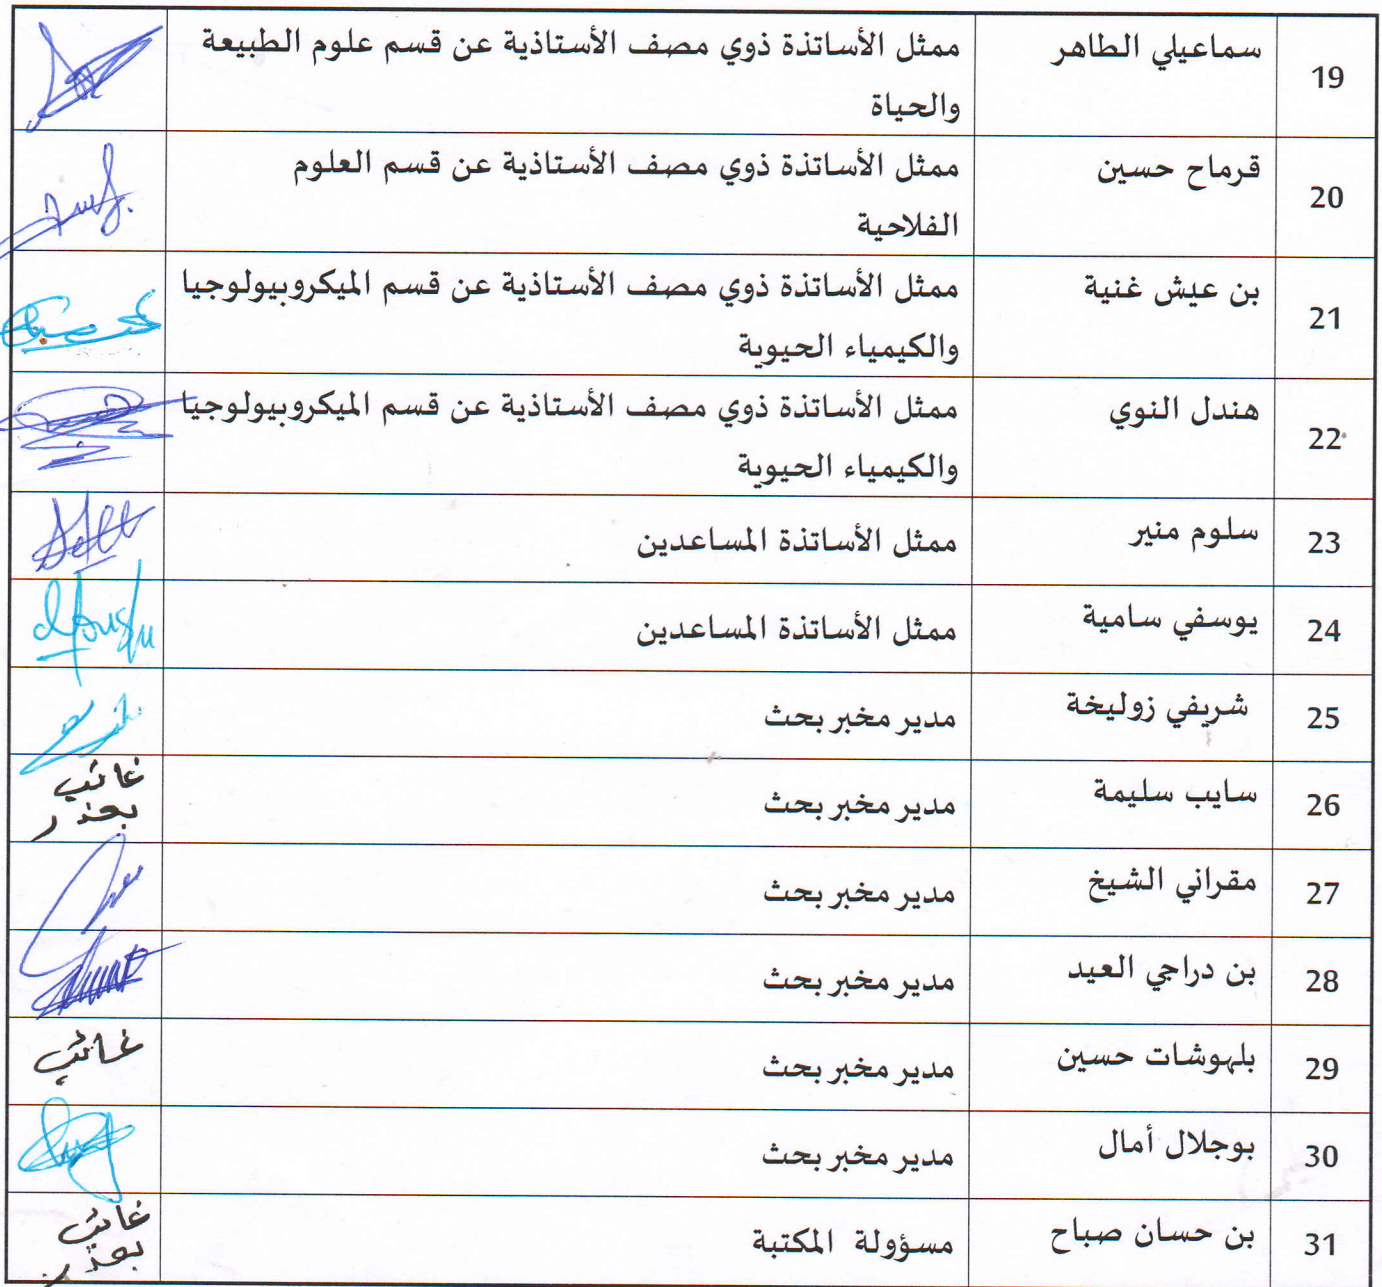 19 سماعيلي الطاهر ممثل الأساتذة ذوي مصف الأستاذية عن قسم علوم الطبيعة
والحياة
20 قرماح حسين ممثل الأساتذة ذوي مصف الأستاذية عن قسم العلوم
الفلاحية
21 بن عيش غنية ممثل الأساتذة ذوي مصف الأستاذية عن قسم الميكروبيولوجيا
والكيمياء الحيوية
22 هندل النوي ممثل الأساتذة ذوي مصف الأستاذية عن قسم الميكروبيولوجيا
والكيمياء الحيوية
23 سلوم منير ممثل الأساتذة المساعدين
24 يوسفي سامية ممثل الأساتذة المساعدين
25 شريفي زوليخة مدير مخبر بحث
26 سايب سليمة مدير مخبر بحث غائب
بعذر
27 مقراني الشيخ مدير مخبر بحث
28 بن دراجي العيد مدير مخبر بحث
29 بلهوشات حسين مدير مخبر بحث غائب
30 بوجلال أمال مدير مخبر بحث
31 بن حسان صباح مسؤولة المكتبة غائب
بعذر